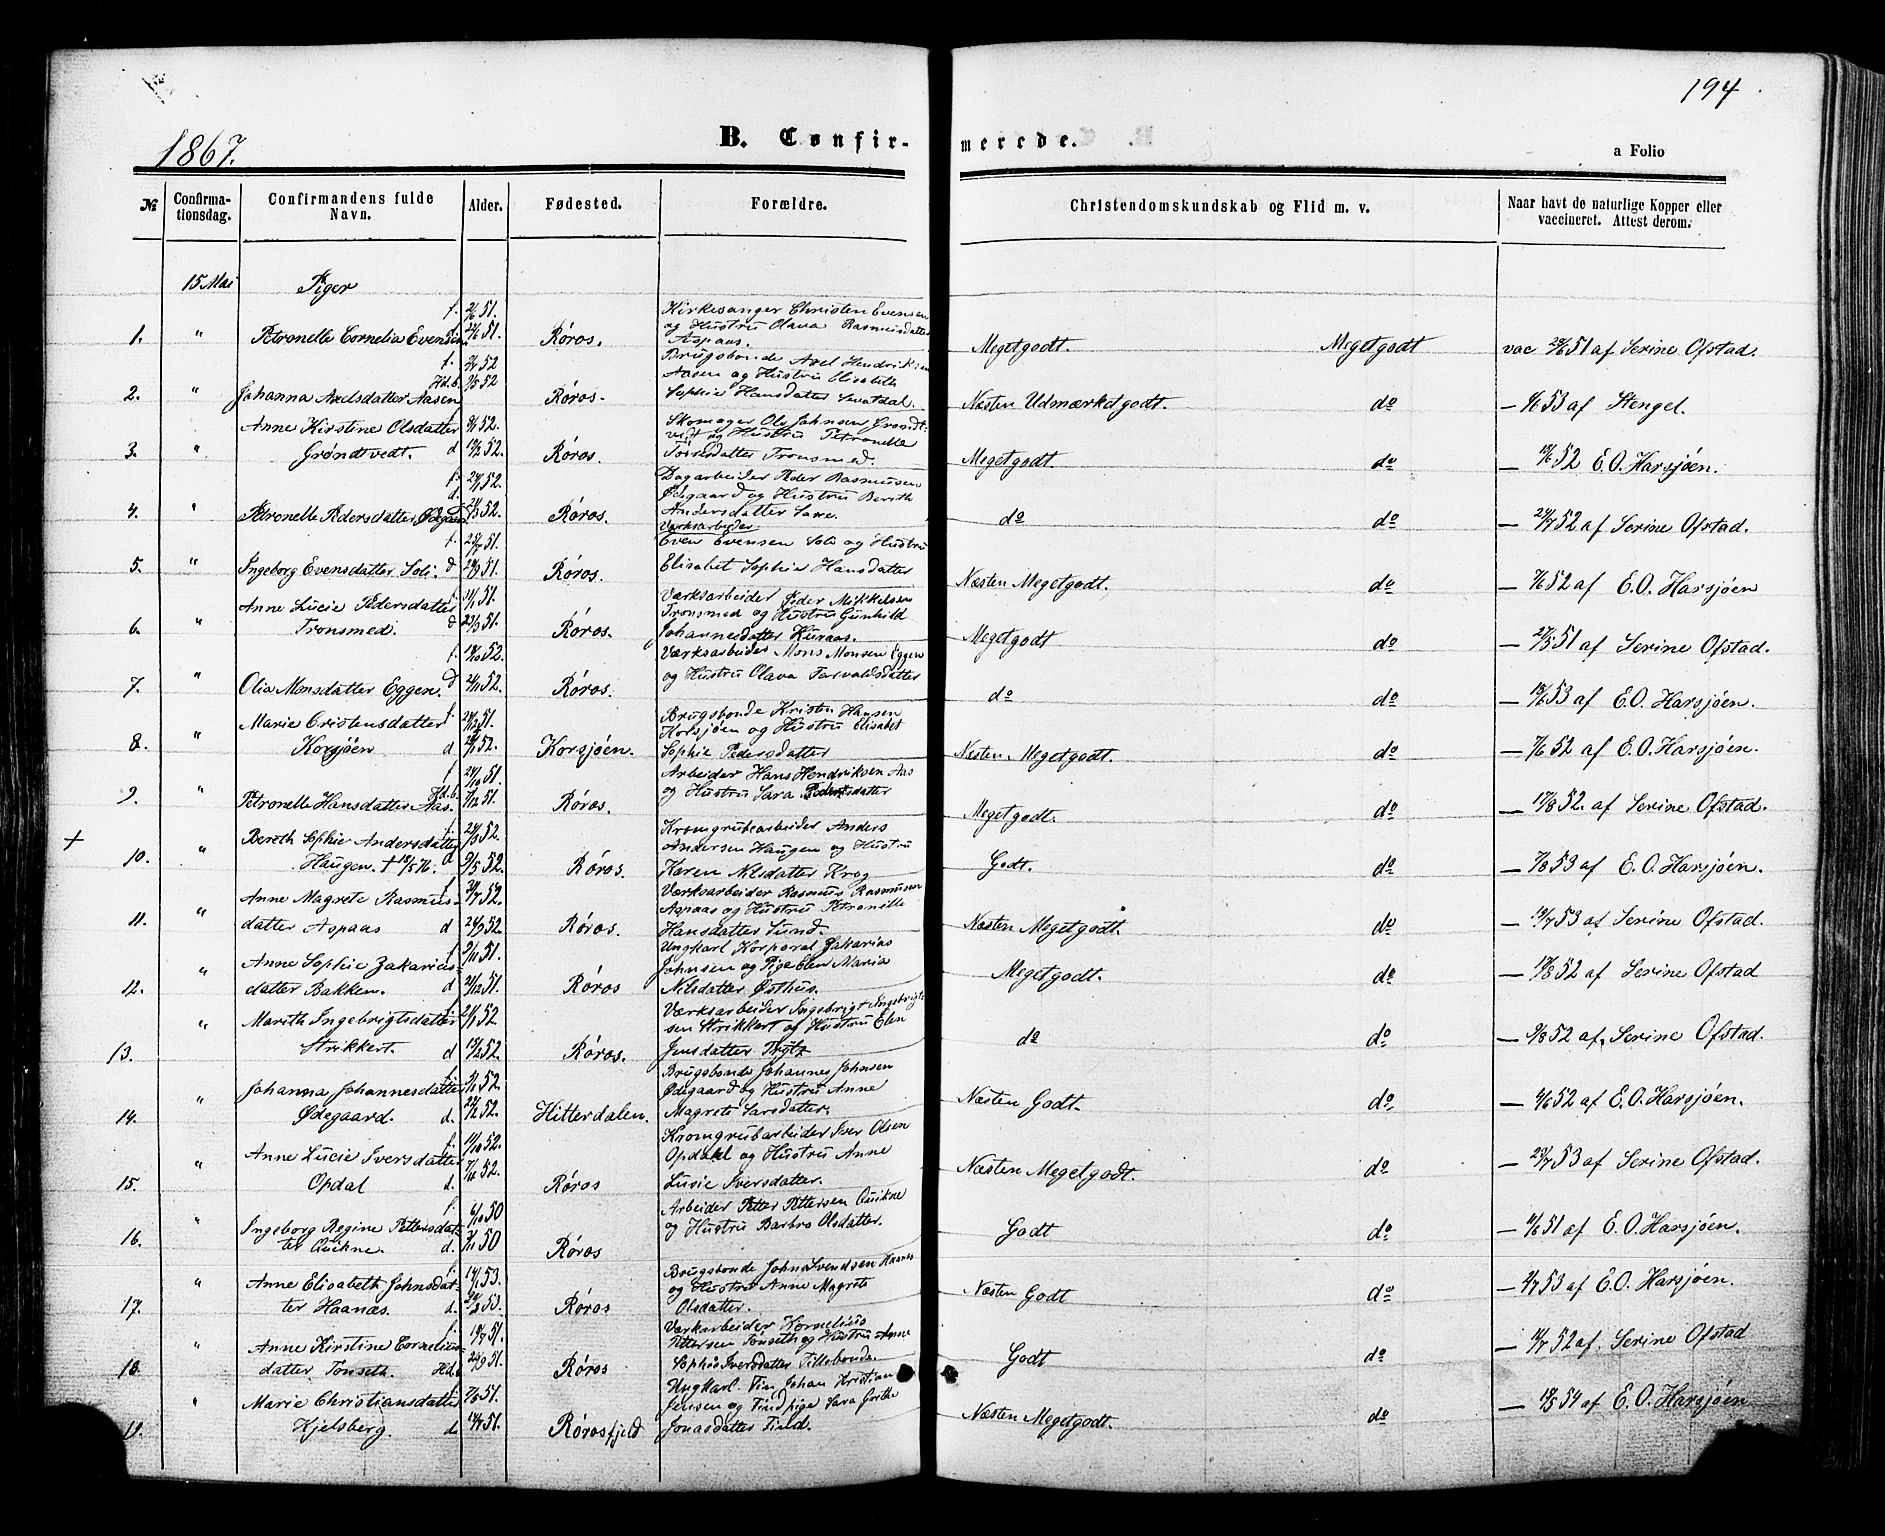 194
1867.
B. Confir-
merede.
a Folio
№
Confirma-
tionsdag.
Confirmandens fulde
Navn.
Alder.
Fødested.
Forældre.
Christendomskundskab og Flid m. v.
Naar havt de naturlige Kopper eller
vaccineret. Attest derom.
15 Mai
Piger
1. " Petronelle Cornelia Evensen f. 51. 51. Røros.
Kirkesanger Christen Evensen
og Hustru Olava Rasmusdatter
Aspaas.
Megetgodt. Megetgodt vac 51 af Serine Ofstad.
2. " Johanna Axelsdatter Aasen f. 52 Hd.b. 52 Røros.
Brugsbonde Axel Hendriksen
Aasen og Hustru Elisabeth
Sophie Hansdatter
Næsten Udmærketgodt. do — 53 af Stengel.
3. " Anne Kirstine Olsdatter
Grøndtvedt. d 52. 52. Røros.
Skomager Ole Johnsen Grøndt-
vedt og Hustru Petronelle
Tronsmed.
Megetgodt. do — 52 E.O. Harsjøen.
4. " Petronelle Pedersdatter Ødegaard f. 52. d. 52. Røros.
Dagarbeider Peder Rasmussen
Ødegaard og Hustru Berith
Andersdatter
do do — 52 af Serine Ofstad.
5. " Ingeborg Evensdatter Soli. f. 51. d 51. Røros.
Værksarbeider
Even Evensen Soli og Hustru
Elisabet Sophie Hansdatter
Næsten Megetgodt. do — 7/6 52 af E.O. Harsjøen
6. " Anne Lucie Pedersdatter
Tronsmed. f 51. d 51. Røros.
Værksarbeider Peder Mikkelsen
Tronsmed og Hustru Gunhild
Johannesdatter Kuraas.
Megetgodt do — 27/5 51 af Serine Ofstad.
7. " Olia Monsdatter Eggen. f. 52. d 52. Røros.
Værksarbeider Mons Monsen Eggen
og Hustru Olava Torvaldsdatter
do do — 53 af E.O. Harsjøen.
8. " Marie Cristensdatter
Korsjøen f. 51. d 52. Korsjøen.
Brugsbonde Kristen Hansen
Korsjøen og Hustru Elisabet
Sophie Pedersdatter
Næsten Megetgodt. do — 7/6 52 af E.O. Harsjøen.
9. " Petronelle Hansdatter Aas. f 51. Hd.b. 7/12 51. Røros.
Arbeider Hans Hendriksen Aas
og Hustru Sara Pedersdatter
Megetgodt. do — 17/8 52. af Serine Ofstad.
+ 10. " Bereth Sophie Andersdatter
Haugen. † 76. f. 52. d 9/5 52. Røros.
Kromgrubearbeider Anders
Andersen Haugen og Hustru
Karen Nilsdatter Krog
Godt. do — 7/8 53 af E.O. Harsjøen.
11. " Anne Magrete Rasmus-
datter Aspaas f 52. d 52. Røros.
Værksarbeider Rasmus Rasmusen
Aspaas og Hustru Petronille
Hansdatter Sund.
Næsten Megetgodt. do — 53 af Serine Ofstad.
12. " Anne Sophie Zakarias-
datter Bakken. f 51. d 51. Røros
Ungkarl Korporal Zakarias
Johnsen og Pige Elen Maria
Nilsdatter Østhus.
Megetgodt. do — 17/8 52 af Serine Ofstad
13. " Marith Ingebrigtsdatter
Strikkert. f 52. d 52. Røros.
Værksarbeider Ingebrigt Ingebrigt-
sen Strikkert og Hustru Elen
Jensdatter
do do — 9/8 52 af. Serine Ofstad.
14. " Johanna Johannesdatter
Ødegaard. f. 52. d. 52. Hitterdalen.
Brugsbonde Johannes Johnsen
Ødegaard og Hustru Anne
Magrete Larsdatter.
Næsten Godt. do — 52 af E.O. Harsjøen.
15. " Anne Lucie Iversdatter
Opdal f. 52. d. 52. Røros
Kromgrubarbeider Iver Olsen
Opdahl og Hustru Anne
Lusie Iversdatter.
Næsten Megetgodt. do — 53 af Serine Ofstad.
16. " Ingeborg Regine Pettersdat-
ter Quikne. f. 50 d. 50 Røros
Arbeider Petter Pettersen Quikne
og Hustru Barbro Olsdatter.
Godt do — 51 af E.O. Harsjøen.
17. " Anne Elisabeth Johnsdat-
ter Haanæs. f. 53. d. 53. Røros
Brugsbonde John Svendsen Haanes
og Hustru Anne Magrete
Olsdatter.
Næsten Godt do — 53 af E.O. Harsjøen.
18. " Anne Kirstine Cornelius-
datter Tønseth. f. 51. Hd. 51. Røros
Værkarbeider Kornelius
Pettersen Tønseth og Hustru Anne
Sophie Iversdatter
Godt do — 52 af. Serine Ofstad
19. " Marie Christiansdatter
Kjelsberg. f. 51. d. 51. Rørosfjeld
Ungkarl. Fin Johan Kristian
Jensen og Findpige Sara Grethe
Jonasdatter Find.
Næsten Megetgodt. do — 54 af E.O. Harsjøen